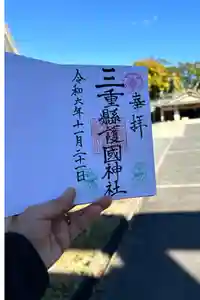 奉拝
三重縣護國神社
令和六年十一月二十一日